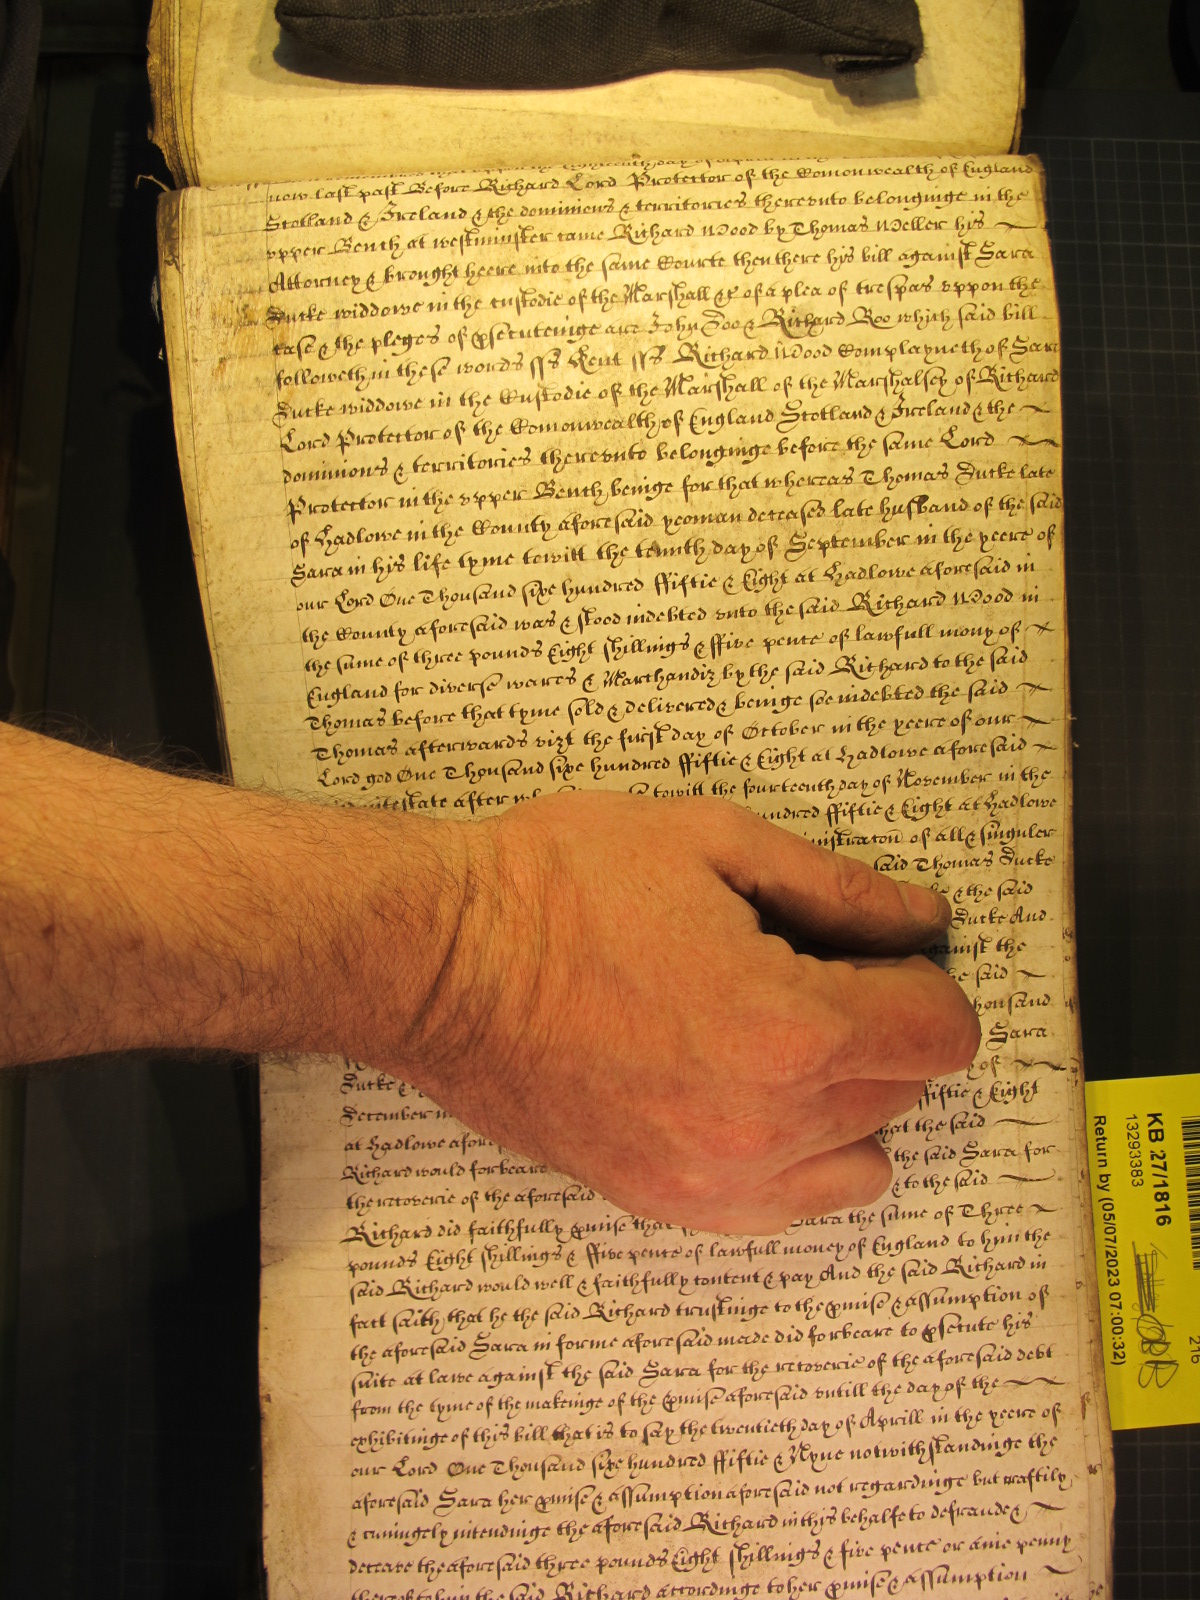 now last past Before Richard Lord Protector of the Comonwealth of England
Scotland & Ireland & the dominions & territories therevnto belonginge in the
vpper Bench at westminster came Richard Wood by Thomas Weller his
Attorney & brought heere into the same Courte then there his bill against Sara
Ducke widdowe in the custodie of the Marshall &c of a plea of trespas vppon the
case & the pleges of psecuteinge are John Doo & Richard Roo which said bill
followeth in these words ss Kent ss Richard Wood Complayneth of Sara
Ducke widdowe in the Custodie of the Marshall of the Marshalsey of Richard
Lord Protector of the Comonwealth of England Scotland & Ireland & the
dominions & territories therevnto belonginge before the same Lord
Protector in the vpper Bench beinge for that whereas Thomas Ducke late
of Hadlowe in the County aforesaid yeoman deceased late husband of the said
Sara in his life tyme towitt the tennth day of September in the yeere of
our Lord One Thousand sixe hundred ffiftie & Eight at Hadlowe aforesaid in
the County aforesaid was & stood indebted vnto the said Richard Wood in
the sume of three pounds Eight shillings & ffive pence of lawfull mony of
England for diverse wares & Marchandiz by the said Richard to the said
Thomas before that tyme sold & delivered & beinge soe indebted the said
Thomas afterwards vizt the first day of October in the yeere of our
Lord god One Thousand sixe hundred ffiftie & Eight at Hadlowe aforesaid
intestate after towitt the fourteenth day of November in the
hundred ffiftie & Eight at Hadlowe
of all & singuler
said Thomas Ducke
& the said
Ducke And
against the
the said
Thousand
Sara
of
Ducke
ffiftie & Eight
December
that the said
at Hadlowe
the said Sara for
Richard would forbeare
& to the said
the recoverie of the aforesaid
Richard did faithfully pmise that Sara the sume of Three
pounds Eight shillings & ffive pence of lawfull money of England to him the
said Richard would well & faithfully content & pay And the said Richard in
fact saith that he the said Richard trustinge to the pmise & assumption of
the aforesaid Sara in forme aforesaid made did forbeare to psecute his
suite at lawe against the said Sara for the recoverie of the aforesaid debt
from the tyme of the makeinge of the pmise aforesaid vntill the day of the
exhibitinge of this bill that is to say the twentieth day of Aprill in the yeere of
our Lord One Thousand sixe hundred ffiftie & Nyne notwithstandinge the
aforesaid Sara her pmise & assumption aforesaid not regardinge but craftily
& cuningely intendinge the aforesaid Richard in this behalfe to defraude &
deceave the aforesaid three pounds Eight shillings & five pence or anie penny
thereof to him the said Richard accordinge to her pmise & assumption
KB 27/1816
13293383
Return by (05/07/2023 07:00:32)
216